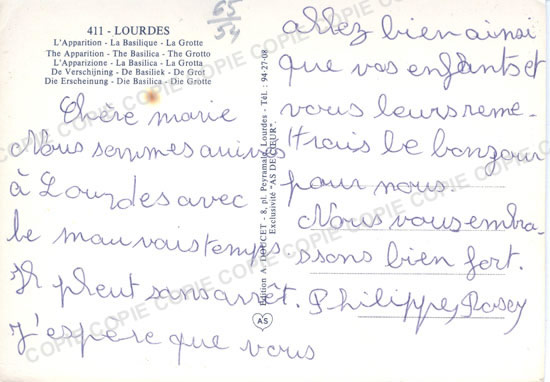 411 - LOURDES
L'Apparition - La Basilique - La Grotte
The Apparition - The Basilica - The Grotto
L'Apparizione - La Basilica - La Grotta
De Verschijning - De Basiliek - De Grot
Die Erscheinung - Die Basilica - Die Grotte
65
54
Chère marie
Nous sommes arrivés
à Lourdes avec
le mauvais temps.
Il pleut sans arrêt.
J'espère que vous
allez bien ainsi
que vos enfants et
vous leurs reme-
ttrais le bonjour
pour nous.
Nous vous embra-
ssons bien fort.
Philippe, Rosey
Edition A. DOUCET - 8, pl. Peyramale, Lourdes - Tél. : 94-27-08
Exclusivité "AS DE CŒUR".
AS
COPIE COPIE COPIE COPIE COPIE COPIE